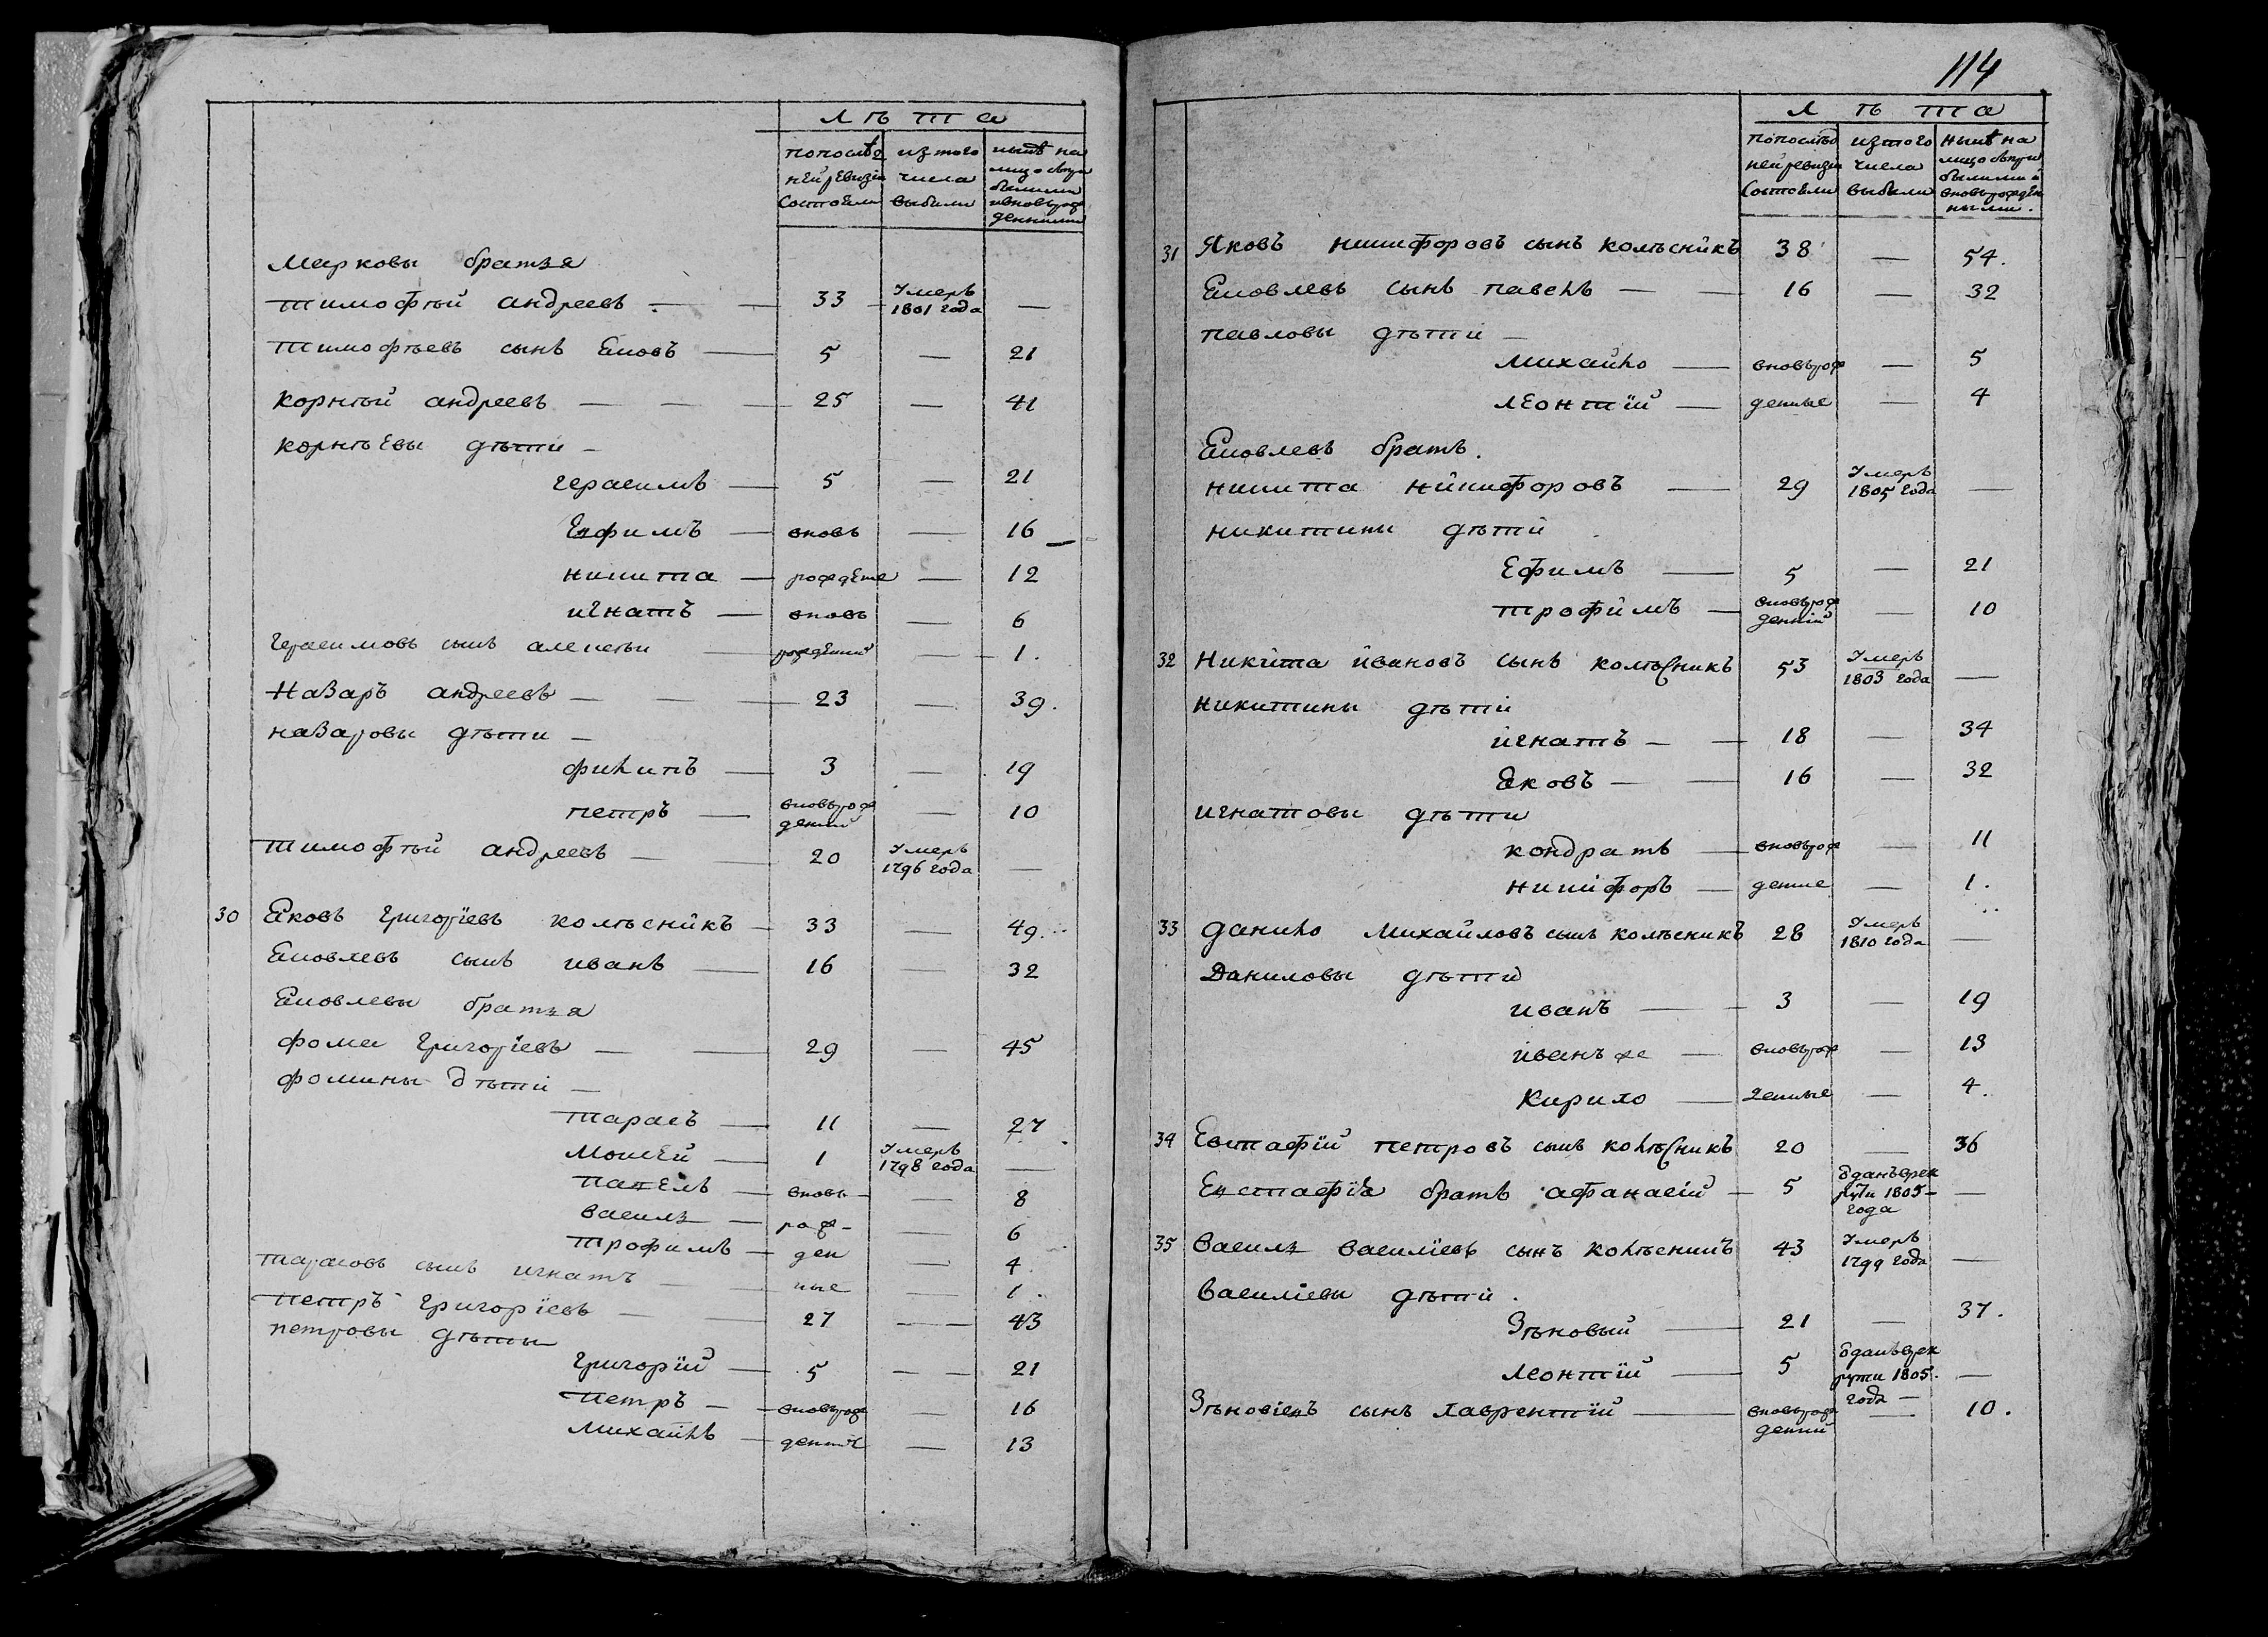 Лѣта
попослѣд изтого нынѣ на
ней ревизіи числа лицо сьпри
состояли выбыли былыми
ивновьрож
денными
Марковы братья
тимофѣй андреевъ — 33 Умеръ 1801 года —
тимофѣевъ сынъ Яковъ — 5 — 21
корнѣй андреевъ — 25 — 41
корнѣевы дѣти —
герасимъ — 5 — 21
Ефимъ — вновь — 16
никита — рождение — 12
игнатъ — вновь — 6
Герасимовъ сынъ алексѣй — рожденний — 1.
Назаръ андреевъ — 23 — 39.
назаровы дѣти —
филипъ — 3 — 19
петръ — вновьрож дений — 10
тимофѣй андреевъ — 20 Умеръ 1796 года —
30 Яковъ григорїевъ колѣсникъ — 33 — 49.
Яковлевъ сынъ иванъ — 16 — 32
Яковлевы братья
фома григорїевъ — 29 — 45
фомины дѣти —
тарасъ — 11 — 27
Моисей — 1 Умеръ 1798 года —
павелъ — вновь — 8
василь — рож — 6
трофимъ — ден — 4
тарасовъ сынъ игнатъ — ные — 1.
петръ григорїевъ — 27 — 43
петровы дѣти
григорїй — 5 — 21
петръ — вновьрож — 16
михайлъ — денние — 13
114
Лѣта
попослѣд изтого нынѣ на
ней ревизіи числа лицо сьпри
состояли выбыли былыми и
вновьрожден
ными.
31 Яковъ никифоровъ сынъ колѣсникъ 38 — 54.
Яковлевъ сынъ павелъ — 16 — 32
павловы дѣти —
михайло — вновьрож — 5
леонтїй — денные — 4
Яковлевъ братъ.
никита никифоровъ — 29 Умеръ 1805 года —
никитины дѣти
Ефимъ — 5 — 21
трофимъ — вновьрож денній — 10
32 Никита ивановъ сынъ колѣсникъ 53 Умеръ 1803 года —
никитины дѣти
игнатъ — 18 — 34
Яковъ — 16 — 32
игнатовы дѣти
кондратъ — вновьрож — 11
никифоръ — дение — 1.
33 данило Михайловъ сынъ колѣсникъ 28 Умеръ 1810 года —
Даниловы дѣти
иванъ — 3 — 19
иванъ же — вновьрож — 13
Кирило — денные — 4.
34 Евстафїй петровъ сынъ колѣсникъ 20 — 36
Евстафїя братъ афанасій — 5 Одан въ рек рути 1805 — года —
35 Василь Василїевъ сынъ колѣсникъ 43 Умеръ 1799 года —
Василіевы дѣти.
Зѣновый — 21 — 37.
леонтїй — 5 Одан въ рек рути 1805. года —
Зѣновіевъ сынъ лаврентїй — вновьрож дений — 10.